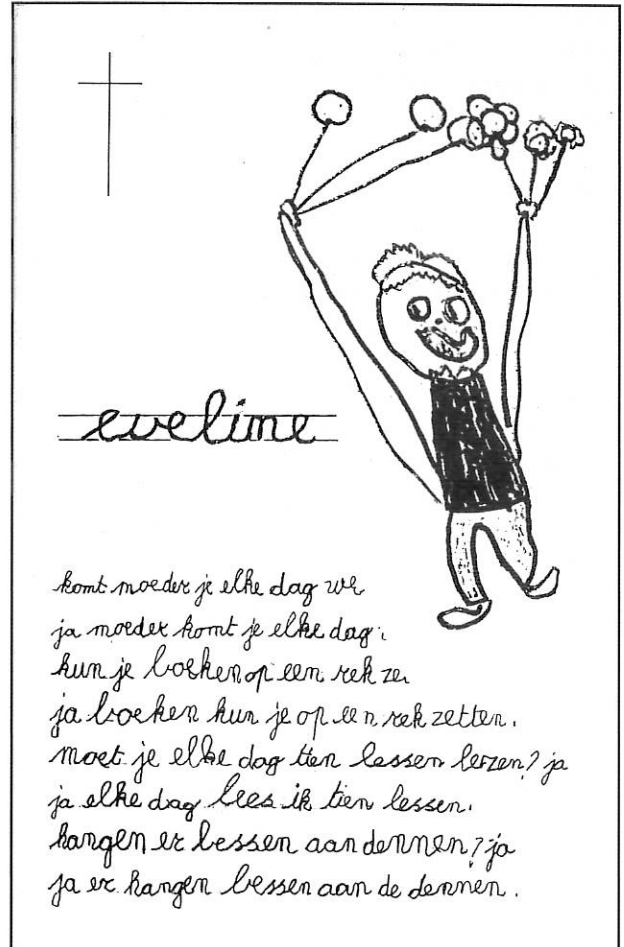 eveline
komt moeder je elke dag we
ja moeder komt je elke dag.
kun je boeken op een rek ze
ja boeken kun je op een rek zetten.
moet je elke dag tien lessen lezen? ja
ja elke dag lees ik tien lessen.
hangen er bessen aan dennen? ja
ja er hangen bessen aan de dennen.